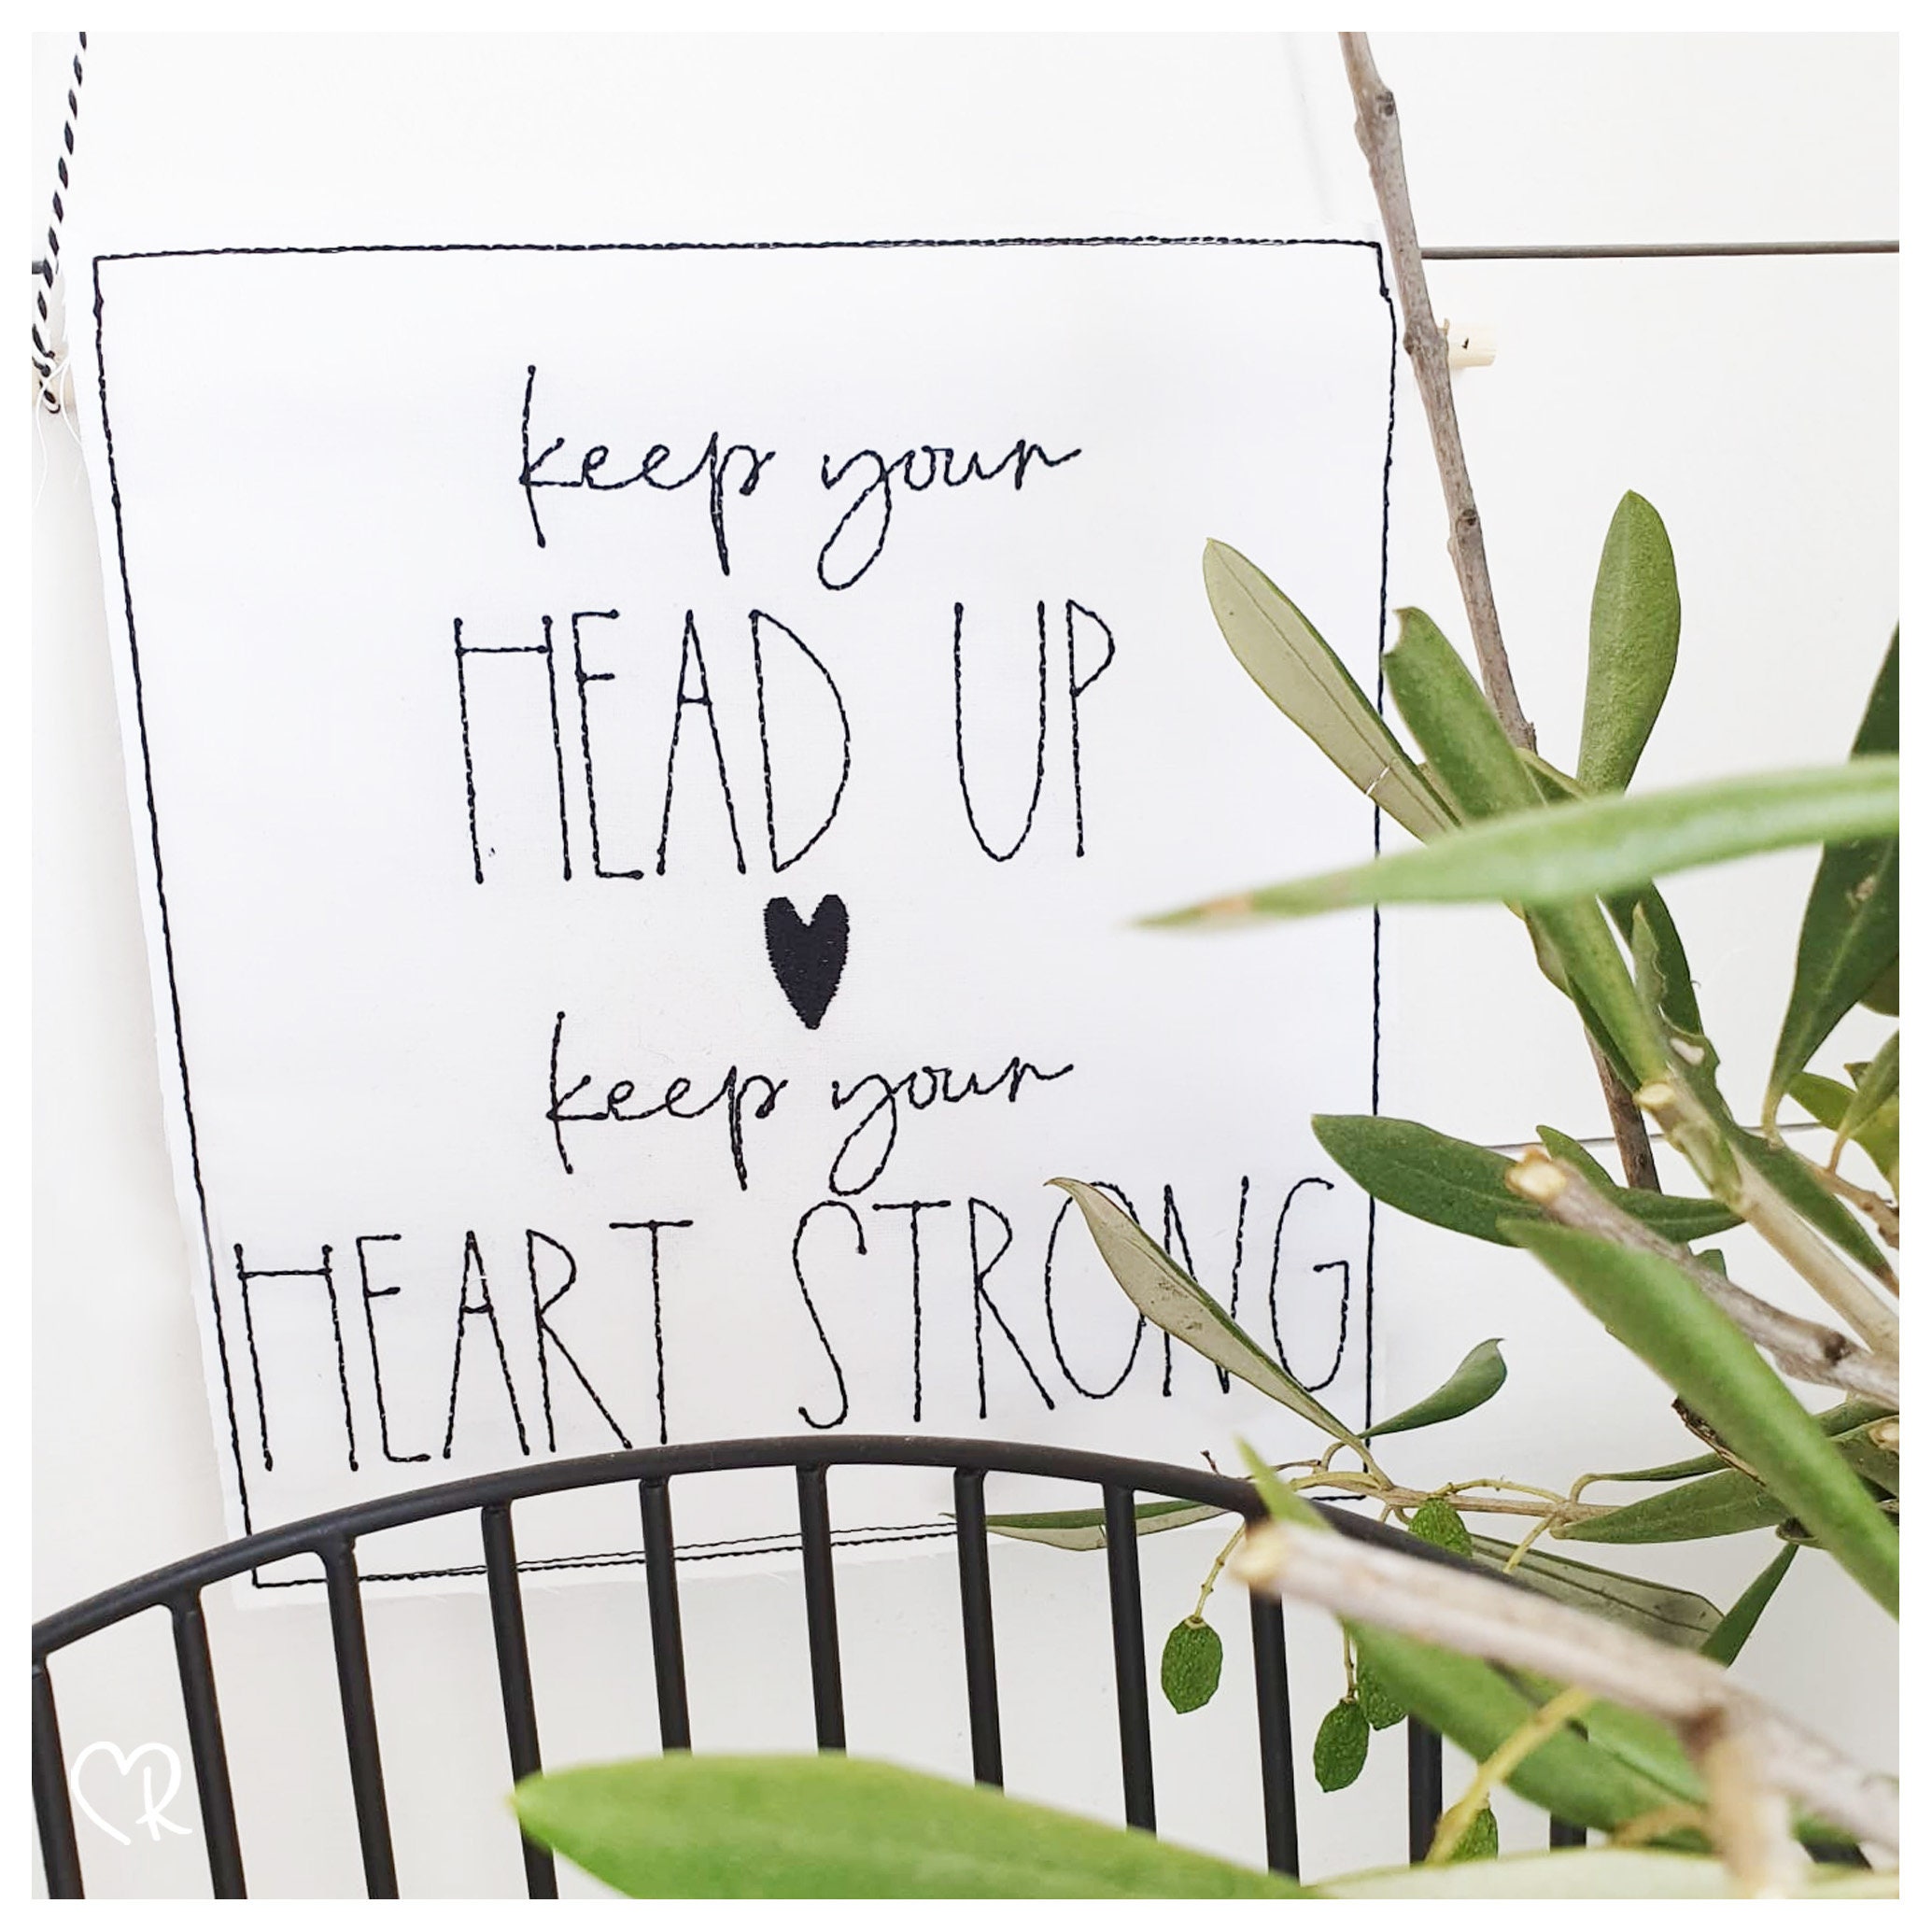 keep your
HEAD UP
keep your
HEART STRONG